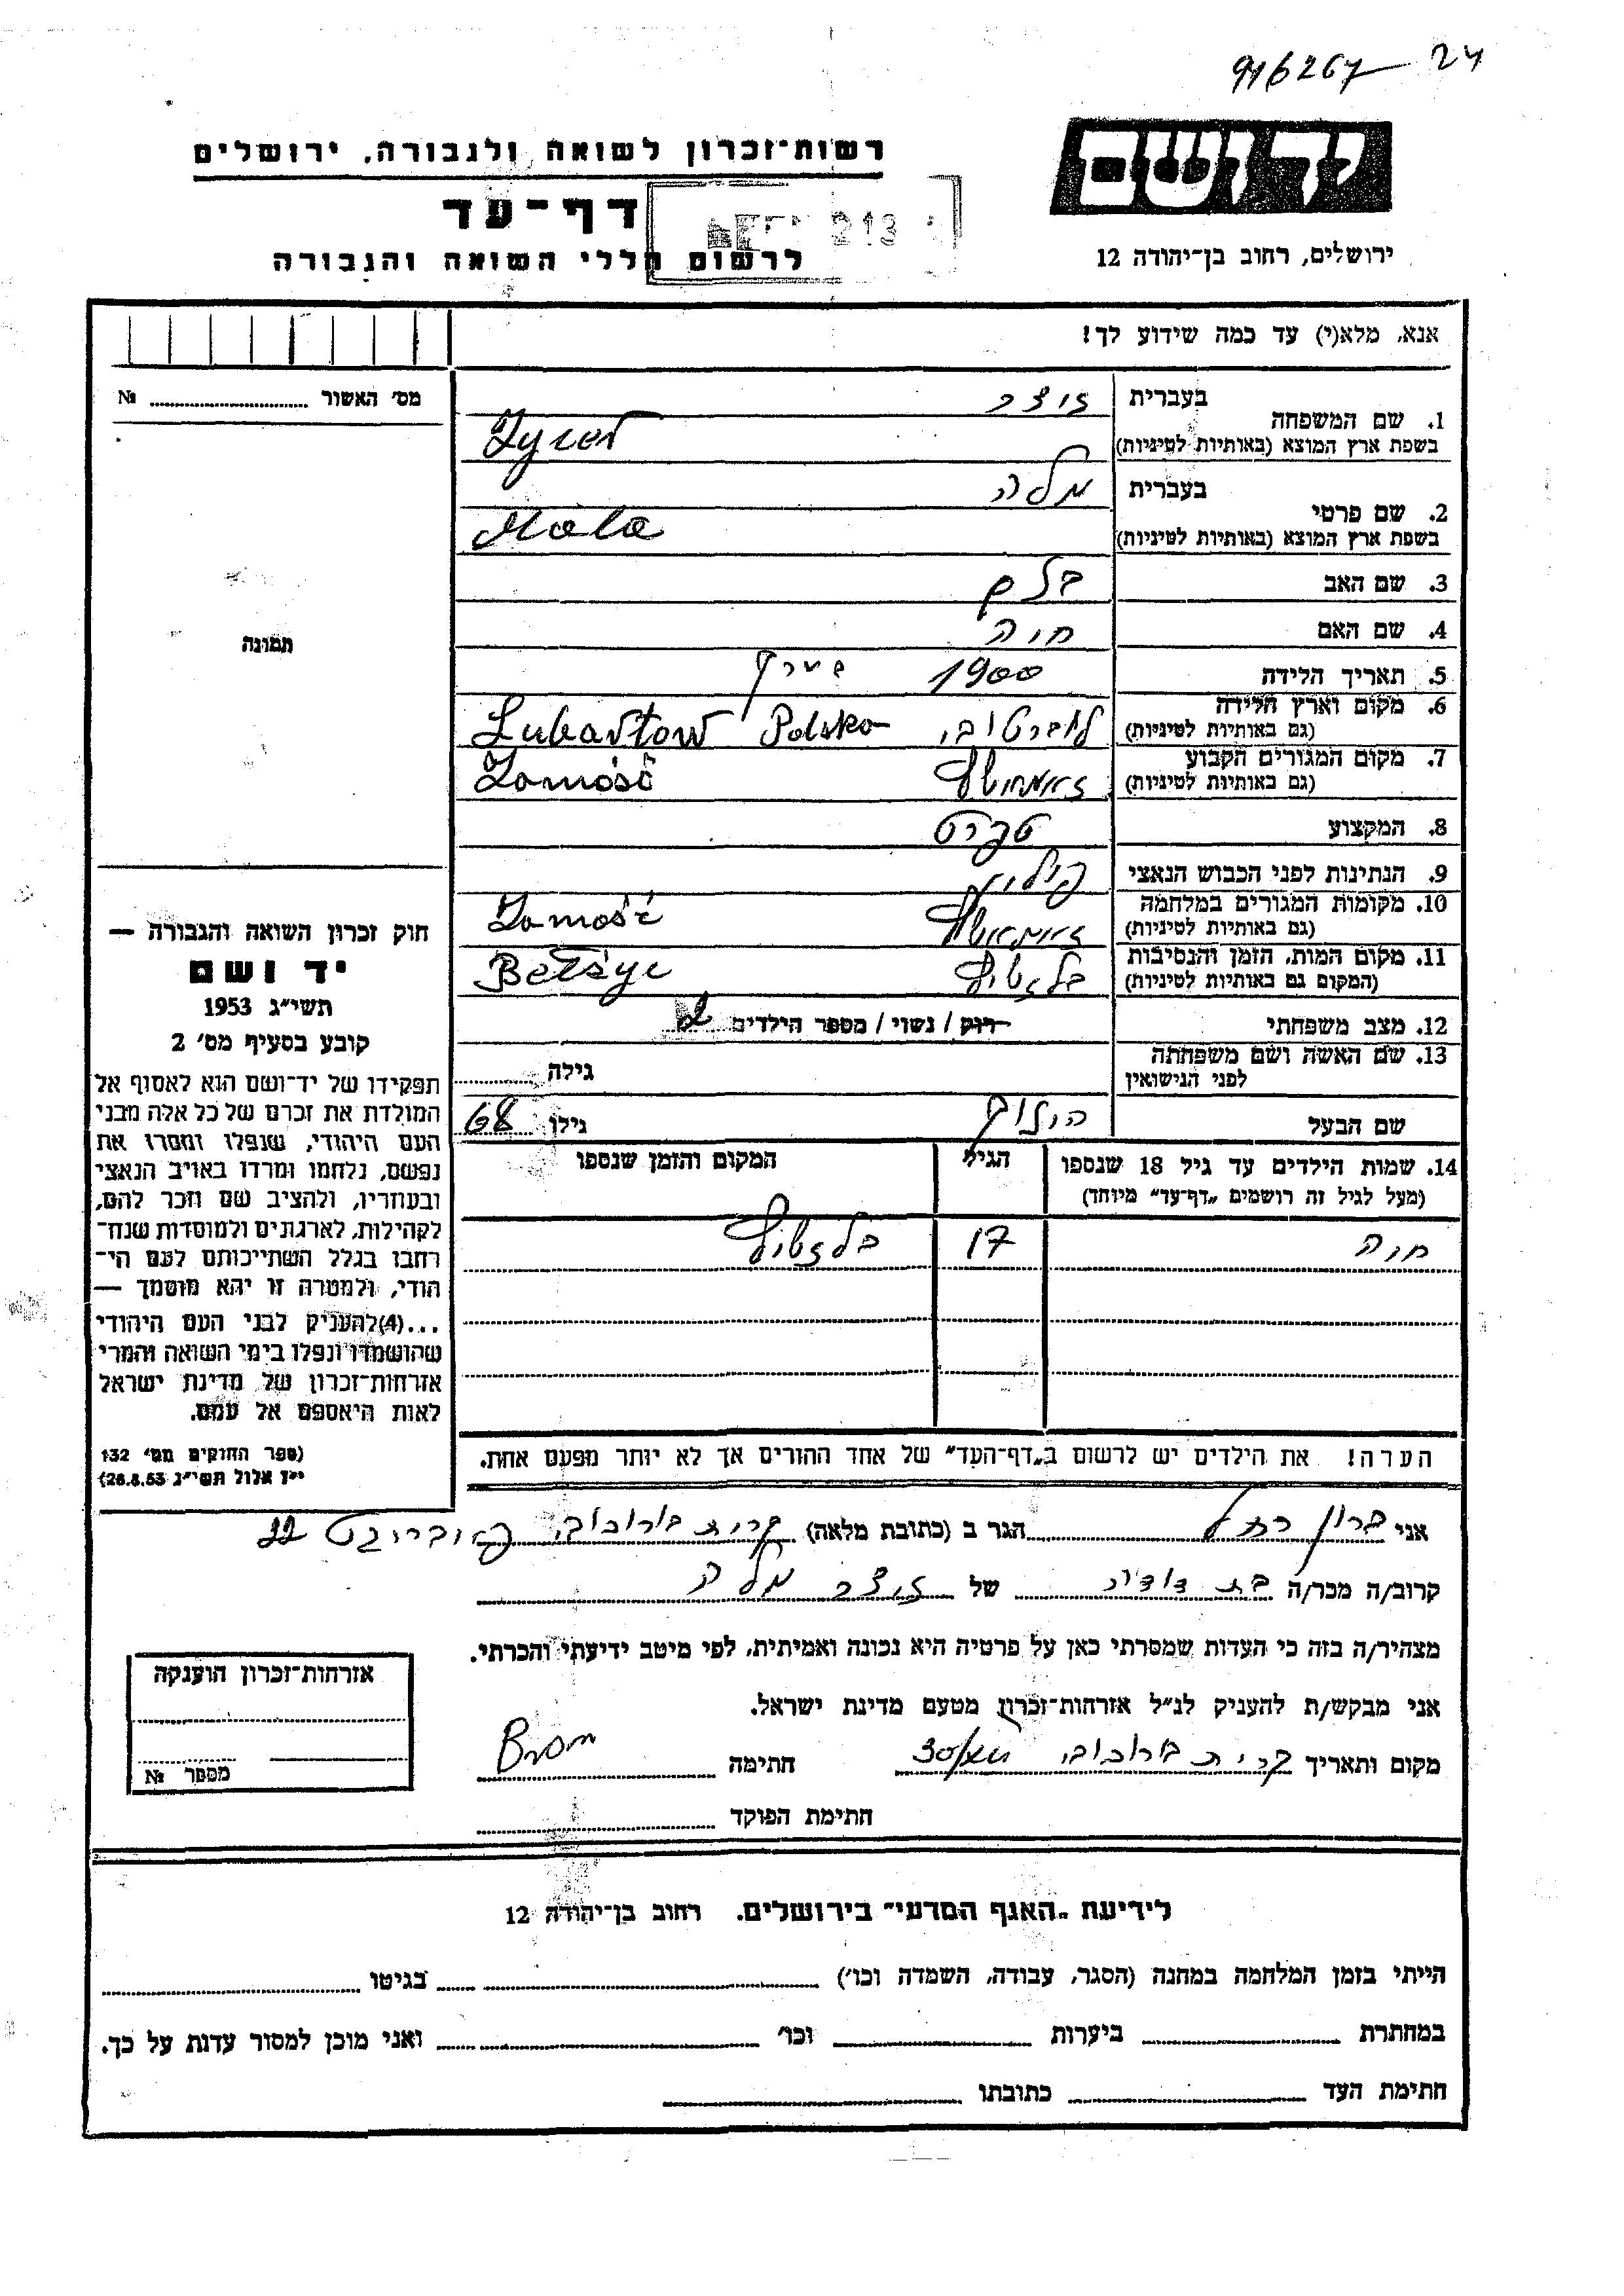 916267 — 24
רשות־זכרון לשואה ולגבורה, ירושלים
יד ושם
דף־עד
לרשום חללי השואה והגבורה
ירושלים, רחוב בן־יהודה 12
אנא, מלא(י) עד כמה שידוע לך!
מס' האשור № 
1. שם המשפחה בעברית זיצר
בשפת ארץ המוצא (באותיות לטיניות) Zycer
2. שם פרטי בעברית מלה
בשפת ארץ המוצא (באותיות לטיניות) Mala
3. שם האב
4. שם האם חוה
5. תאריך הלידה 1900
6. מקום וארץ הלידה (גם באותיות לטיניות) לוברטוב, Lubartow Polska
7. מקום המגורים הקבוע (גם באותיות לטיניות) Zamość
8. המקצוע
9. הנתינות לפני הכבוש הנאצי
10. מקומות המגורים במלחמה (גם באותיות לטיניות) Zamość
11. מקום המות, הזמן והנסיבות (המקום גם באותיות לטיניות) Bełżyc
12. מצב משפחתי רוק / נשוי / מספר הילדים
13. שם האשה ושם משפחתה לפני הנישואין גילה
שם הבעל גילו 68
14. שמות הילדים עד גיל 18 שנספו הגיל המקום והזמן שנספו
(מעל לגיל זה רושמים „דף־עד” מיוחד)
חוה 17
הערה! את הילדים יש לרשום ב„דף־העד” של אחד ההורים אך לא יותר מפעם אחת.
תמונה
חוק זכרון השואה והגבורה —
יד ושם
תשי״ג 1953
קובע בסעיף מס' 2
תפקידו של יד־ושם הוא לאסוף אל
המולדת את זכרם של כל אלה מבני
העם היהודי, שנפלו ומסרו את
נפשם, נלחמו ומרדו באויב הנאצי
ובעוזריו, ולהציב שם וזכר להם,
לקהילות, לארגונים ולמוסדות שנח־
רבו בגלל השתייכותם לעם הי־
הודי, ולמטרה זו יהא מוסמך —
...(4)להעניק לבני העם היהודי
שהושמדו ונפלו בימי השואה והמרי
אזרחות־זכרון של מדינת ישראל
לאות היאספם אל עמם.
(ספר החוקים מס' 132
י״ז אלול תשי״ג 28.8.53)
אני ברון רחל הגר ב (כתובת מלאה) 22
קרוב/ה מכר/ה בת דודה של זיצר מלה
מצהיר/ה בזה כי העדות שמסרתי כאן על פרטיה היא נכונה ואמיתית, לפי מיטב ידיעתי והכרתי.
אני מבקש/ת להעניק לנ״ל אזרחות־זכרון מטעם מדינת ישראל.
מקום ותאריך חתימה Bron
חתימת הפוקד
אזרחות־זכרון הוענקה
מספר №
לידיעת „האגף המדעי” בירושלים. רחוב בן־יהודה 12
הייתי בזמן המלחמה במחנה (הסגר, עבודה, השמדה וכו') בגיטו
במחתרת ביערות וכו' ואני מוכן למסור עדות על כך.
חתימת העד כתובתו